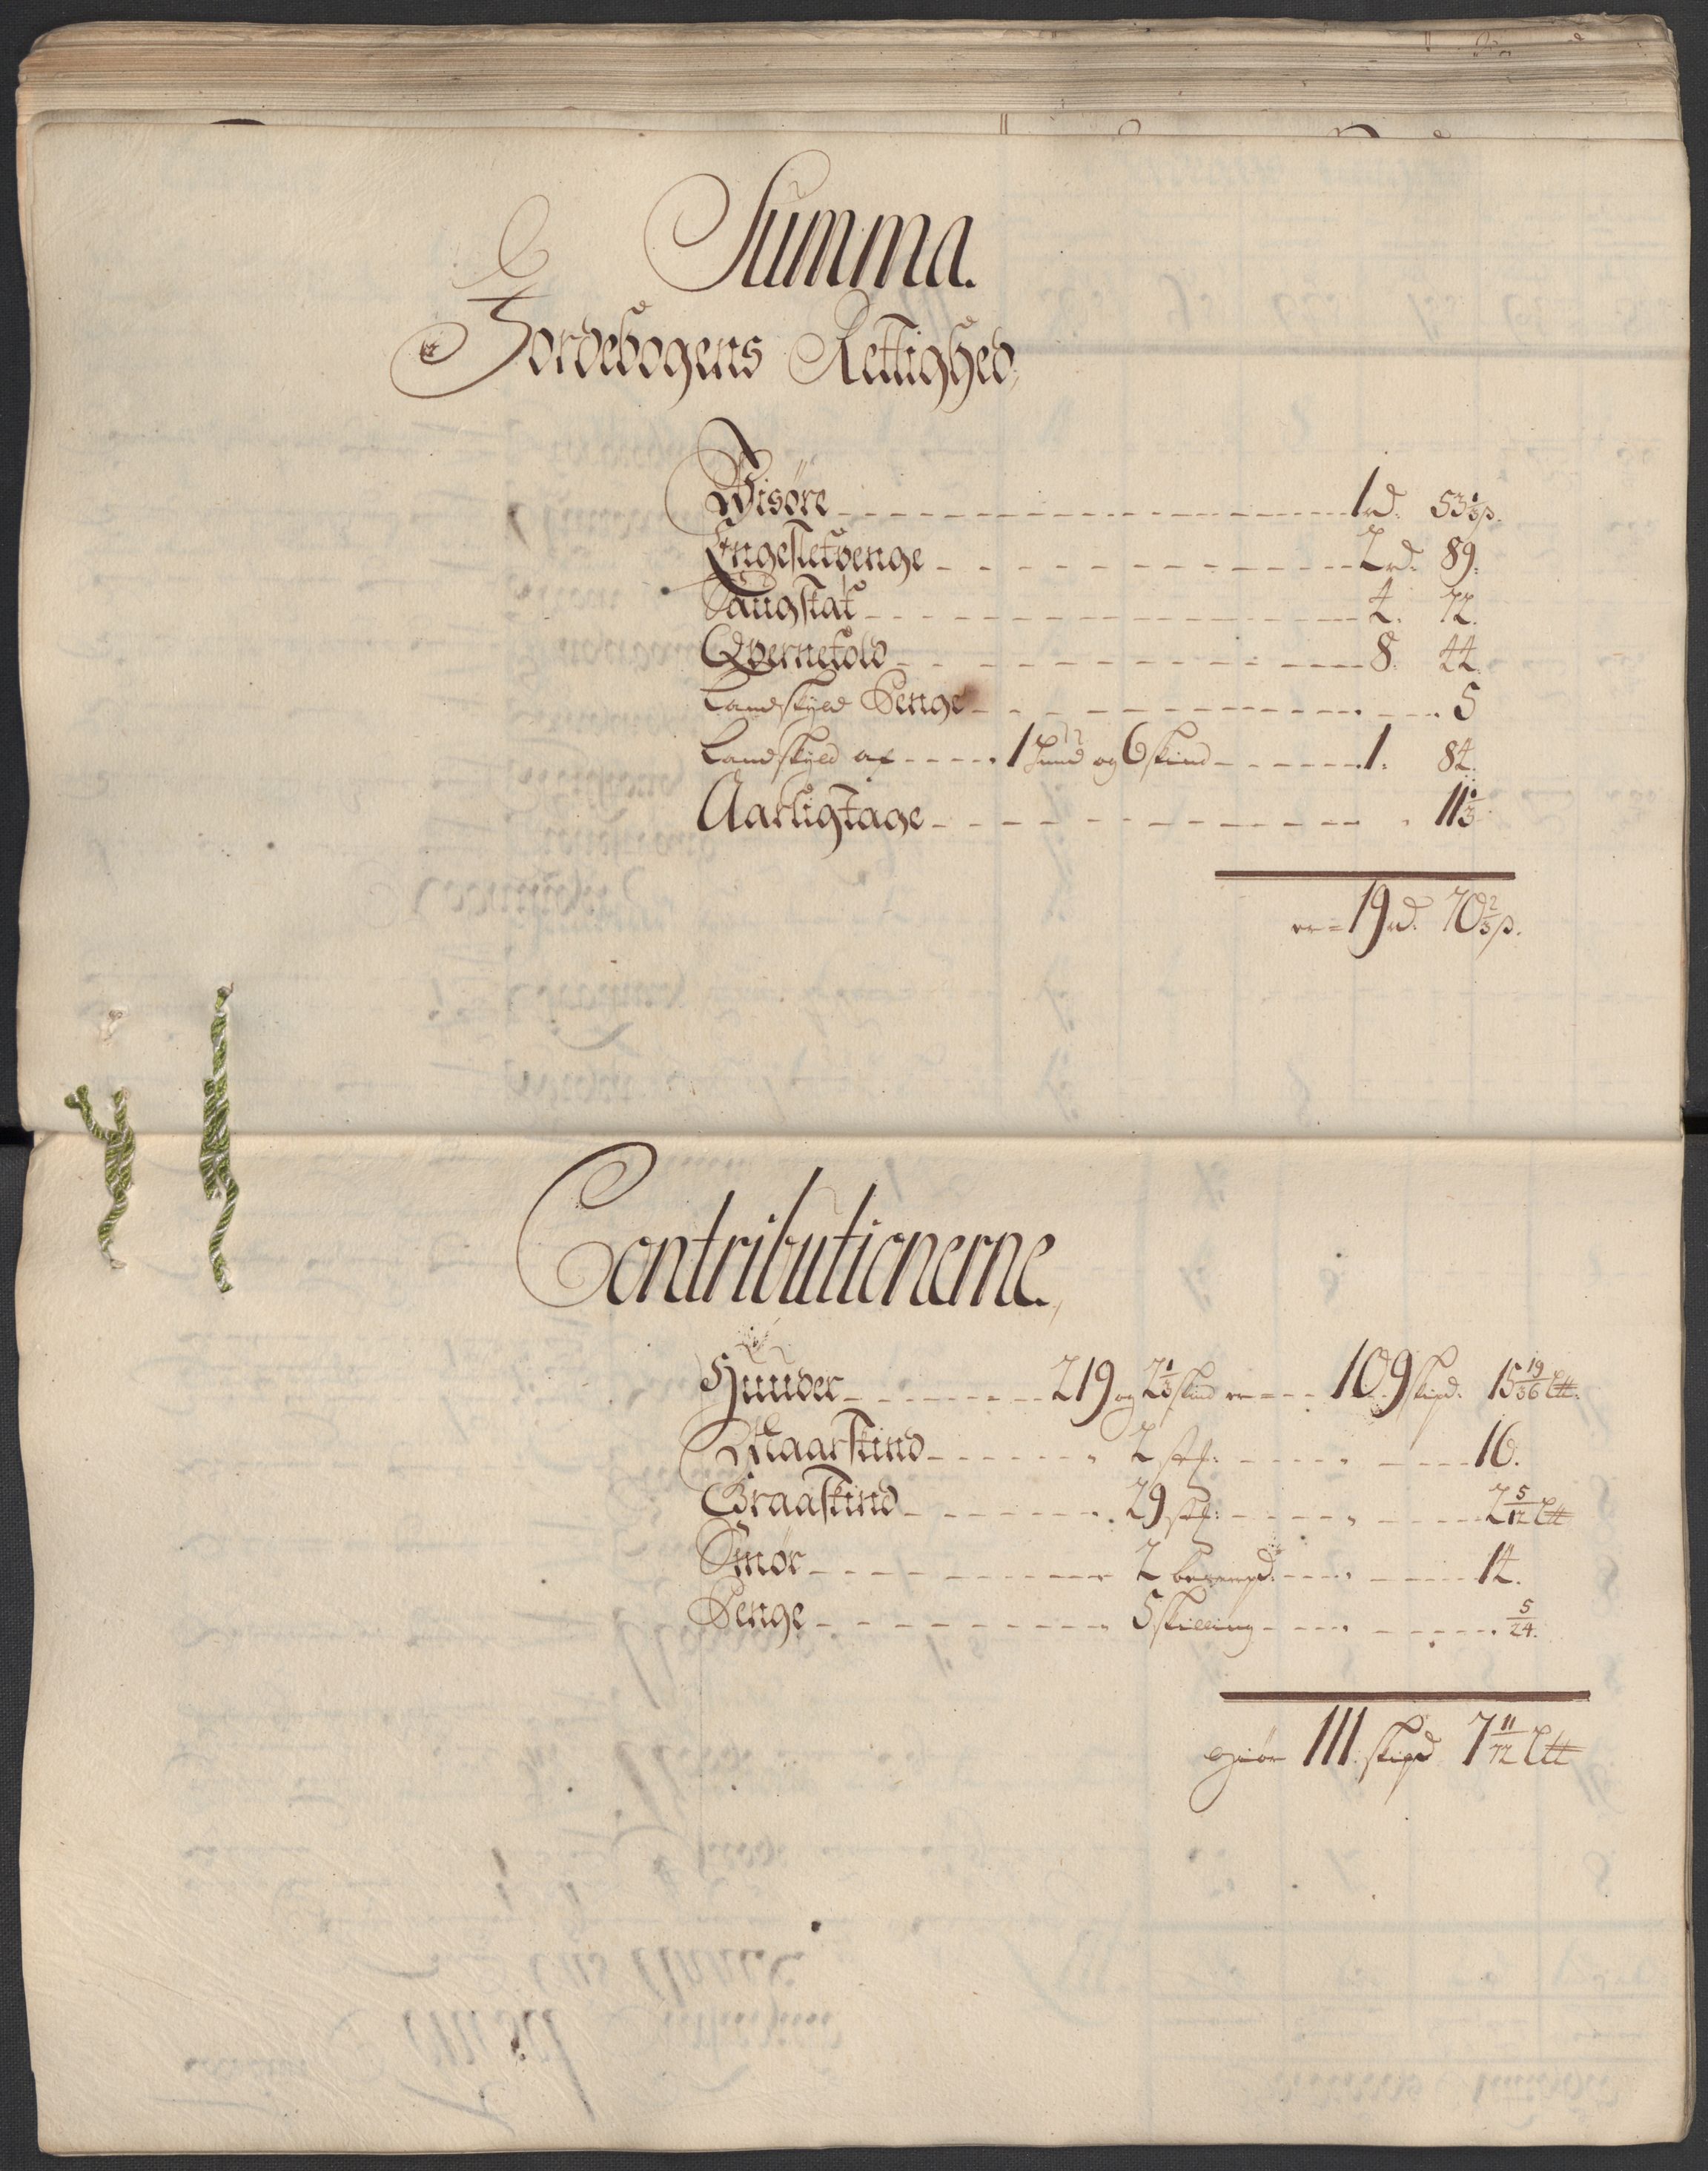 Summa.
Jordebogens Rettighed,
Wisøre 1 rd. 53 1/3 s.
Engesletpenge 2 rd. 89.
Saugskat 4. 72.
Qvernetold 8. 44.
Landskyld Penge 5
Landskyld af 1 Hund og 6 skind 1. 84.
Aarligtage 11 1/3
er = 19 rd. 70 2/3 s.
Contributionerne.
Huuder 219 og 2 1/3 skind er 109 skpd. 15 19/36 Ltt.
Maarskind 2 stk: 16.
Graaskind 29 stk: 2 5/12 Ltt
Smør 2 14.
Penge 5 skilling 5/24.
giør 111 skpd 7 11/72 Ltt